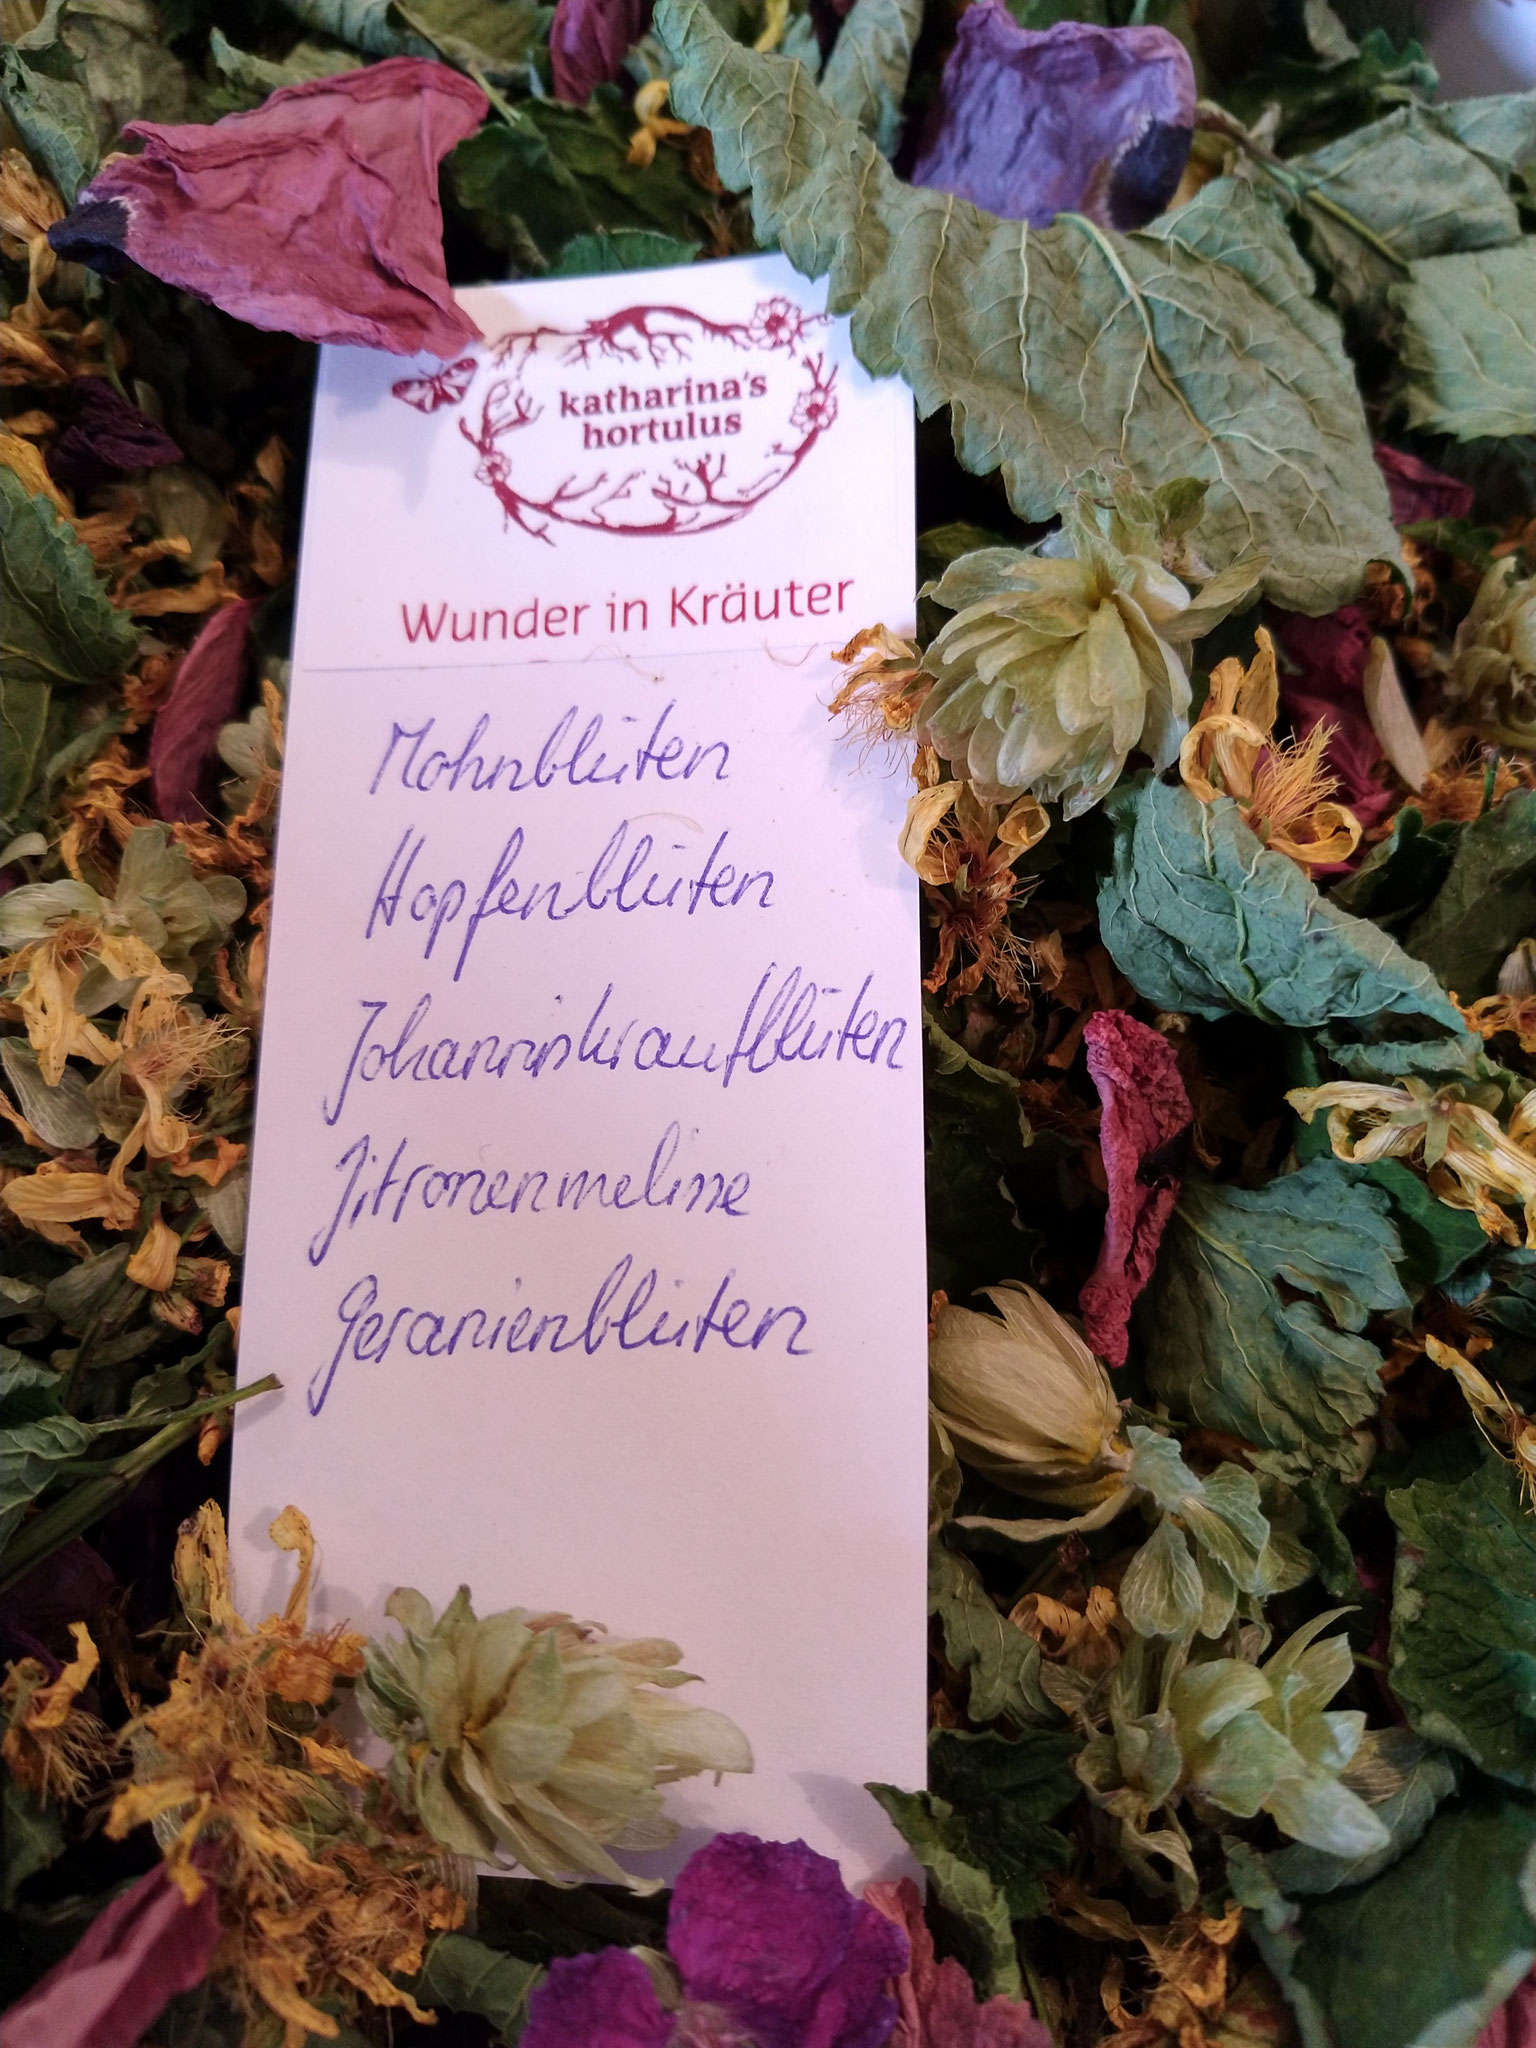 katharina's
hortulus
Wunder in Kräuter
Mohnblüten
Hopfenblüten
Johanniskrautblüten
Zitronenmelisse
Geranienblüten